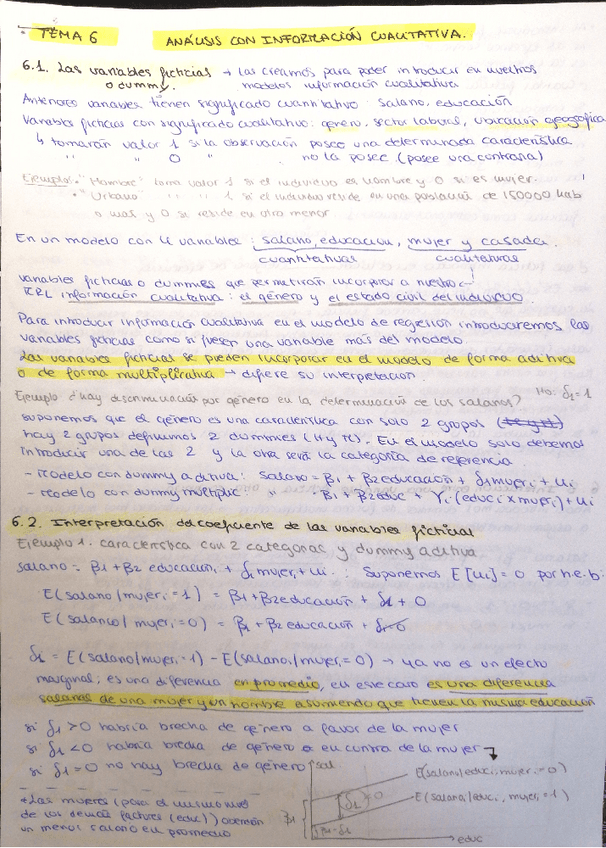 TEMA 6 ANÁLISIS CON INFORMACIÓN CUALITATIVA.
6.1. Las variables ficticias → las creamos para poder introducir en nuestros
o dummy. modelos información cualitativa
Anteriores variables tienen significado cuantitativo: salario, educación
Variables ficticias con significado cualitativo: género, sector laboral, ubicación geográfica
↳ tomarán valor 1 si la observación posee una determinada característica
" " 0 " " no la posee (posee una contraria)
Ejemplo: • "Hombre" toma valor 1 si el individuo es hombre y 0 si es mujer.
• "Urbano" " " 1 si el individuo reside en una población de 150000 hab
o más y 0 si reside en otro menor
En un modelo con 4 variables: salario, educación, mujer y casada.
cuantitativas cualitativas
variables ficticias o dummies que permitirán incorporar a nuestro
información cualitativa: el género y el estado civil del individuo.
Para introducir información cualitativa en el modelo de regresión introduciremos las
variables ficticias como si fuese una variable más del modelo.
Las variables ficticias se pueden incorporar en el modelo de forma aditiva
o de forma multiplicativa → difiere su interpretación.
Ejemplo ¿hay discriminación por género en la determinación de los salarios? H0: δ1 = 1
suponemos que el género es una característica con solo 2 grupos
hay 2 grupos definimos 2 dummies (H y M). En el modelo solo debemos
introducir una de las 2 y la otra será la categoría de referencia
- Modelo con dummy aditiva: Salario = β1 + β2 educación + δ1 mujeri + ui
- Modelo con dummy multiplic " = β1 + β2 educ + γ1 (educi x mujeri) + ui
6.2. Interpretación del coeficiente de las variables ficticias
Ejemplo 1. característica con 2 categorías y dummy aditiva
Salario = β1 + β2 educacioni + δ1 mujeri + ui. Suponemos E[ui] = 0 por h.e.b:
E(salario/mujeri = 1) = β1 + β2 educación + δ1 + 0
E(salario/mujeri = 0) = β1 + β2 educación + δ·0
δ1 = E(salario/mujeri = 1) - E(salario/mujeri = 0) → ya no es un efecto
marginal; es una diferencia en promedio, en este caso es una diferencia
salarial de una mujer y un hombre asumiendo que tienen la misma educación
si δ1 > 0 habría brecha de género a favor de la mujer
si δ1 < 0 habría brecha de género en contra de la mujer
si δ1 = 0 no hay brecha de género
sal
E(salario/educi, mujeri = 0)
E(salario/educi, mujeri = 1)
β1
educ
*Las mujeres (para el mismo nivel
de los demás factores (educ)) obtienen
un menor salario en promedio